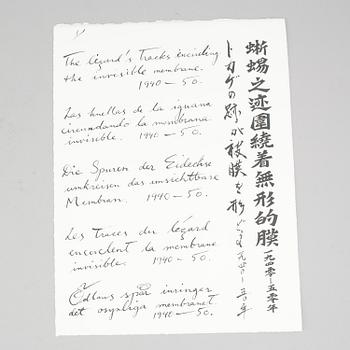 The lizard's Tracks encircling
the invisible membrane.
1940 — 50.
Las huellas de la iguana
circundando la membrana
invisible. 1940 — 50.
Die Spuren der Eidechse
umkreisen das unsichtbare
Membran. 1940 — 50.
Les Traces du lézard
encerclent la membrane
invisible. 1940 — 50.
Ödlans spår inringer
det osynliga membranet.
1940 — 50.
蜥蜴之迹圍繞着無形的膜
一九四零-五零年
トカゲの跡が被膜を形